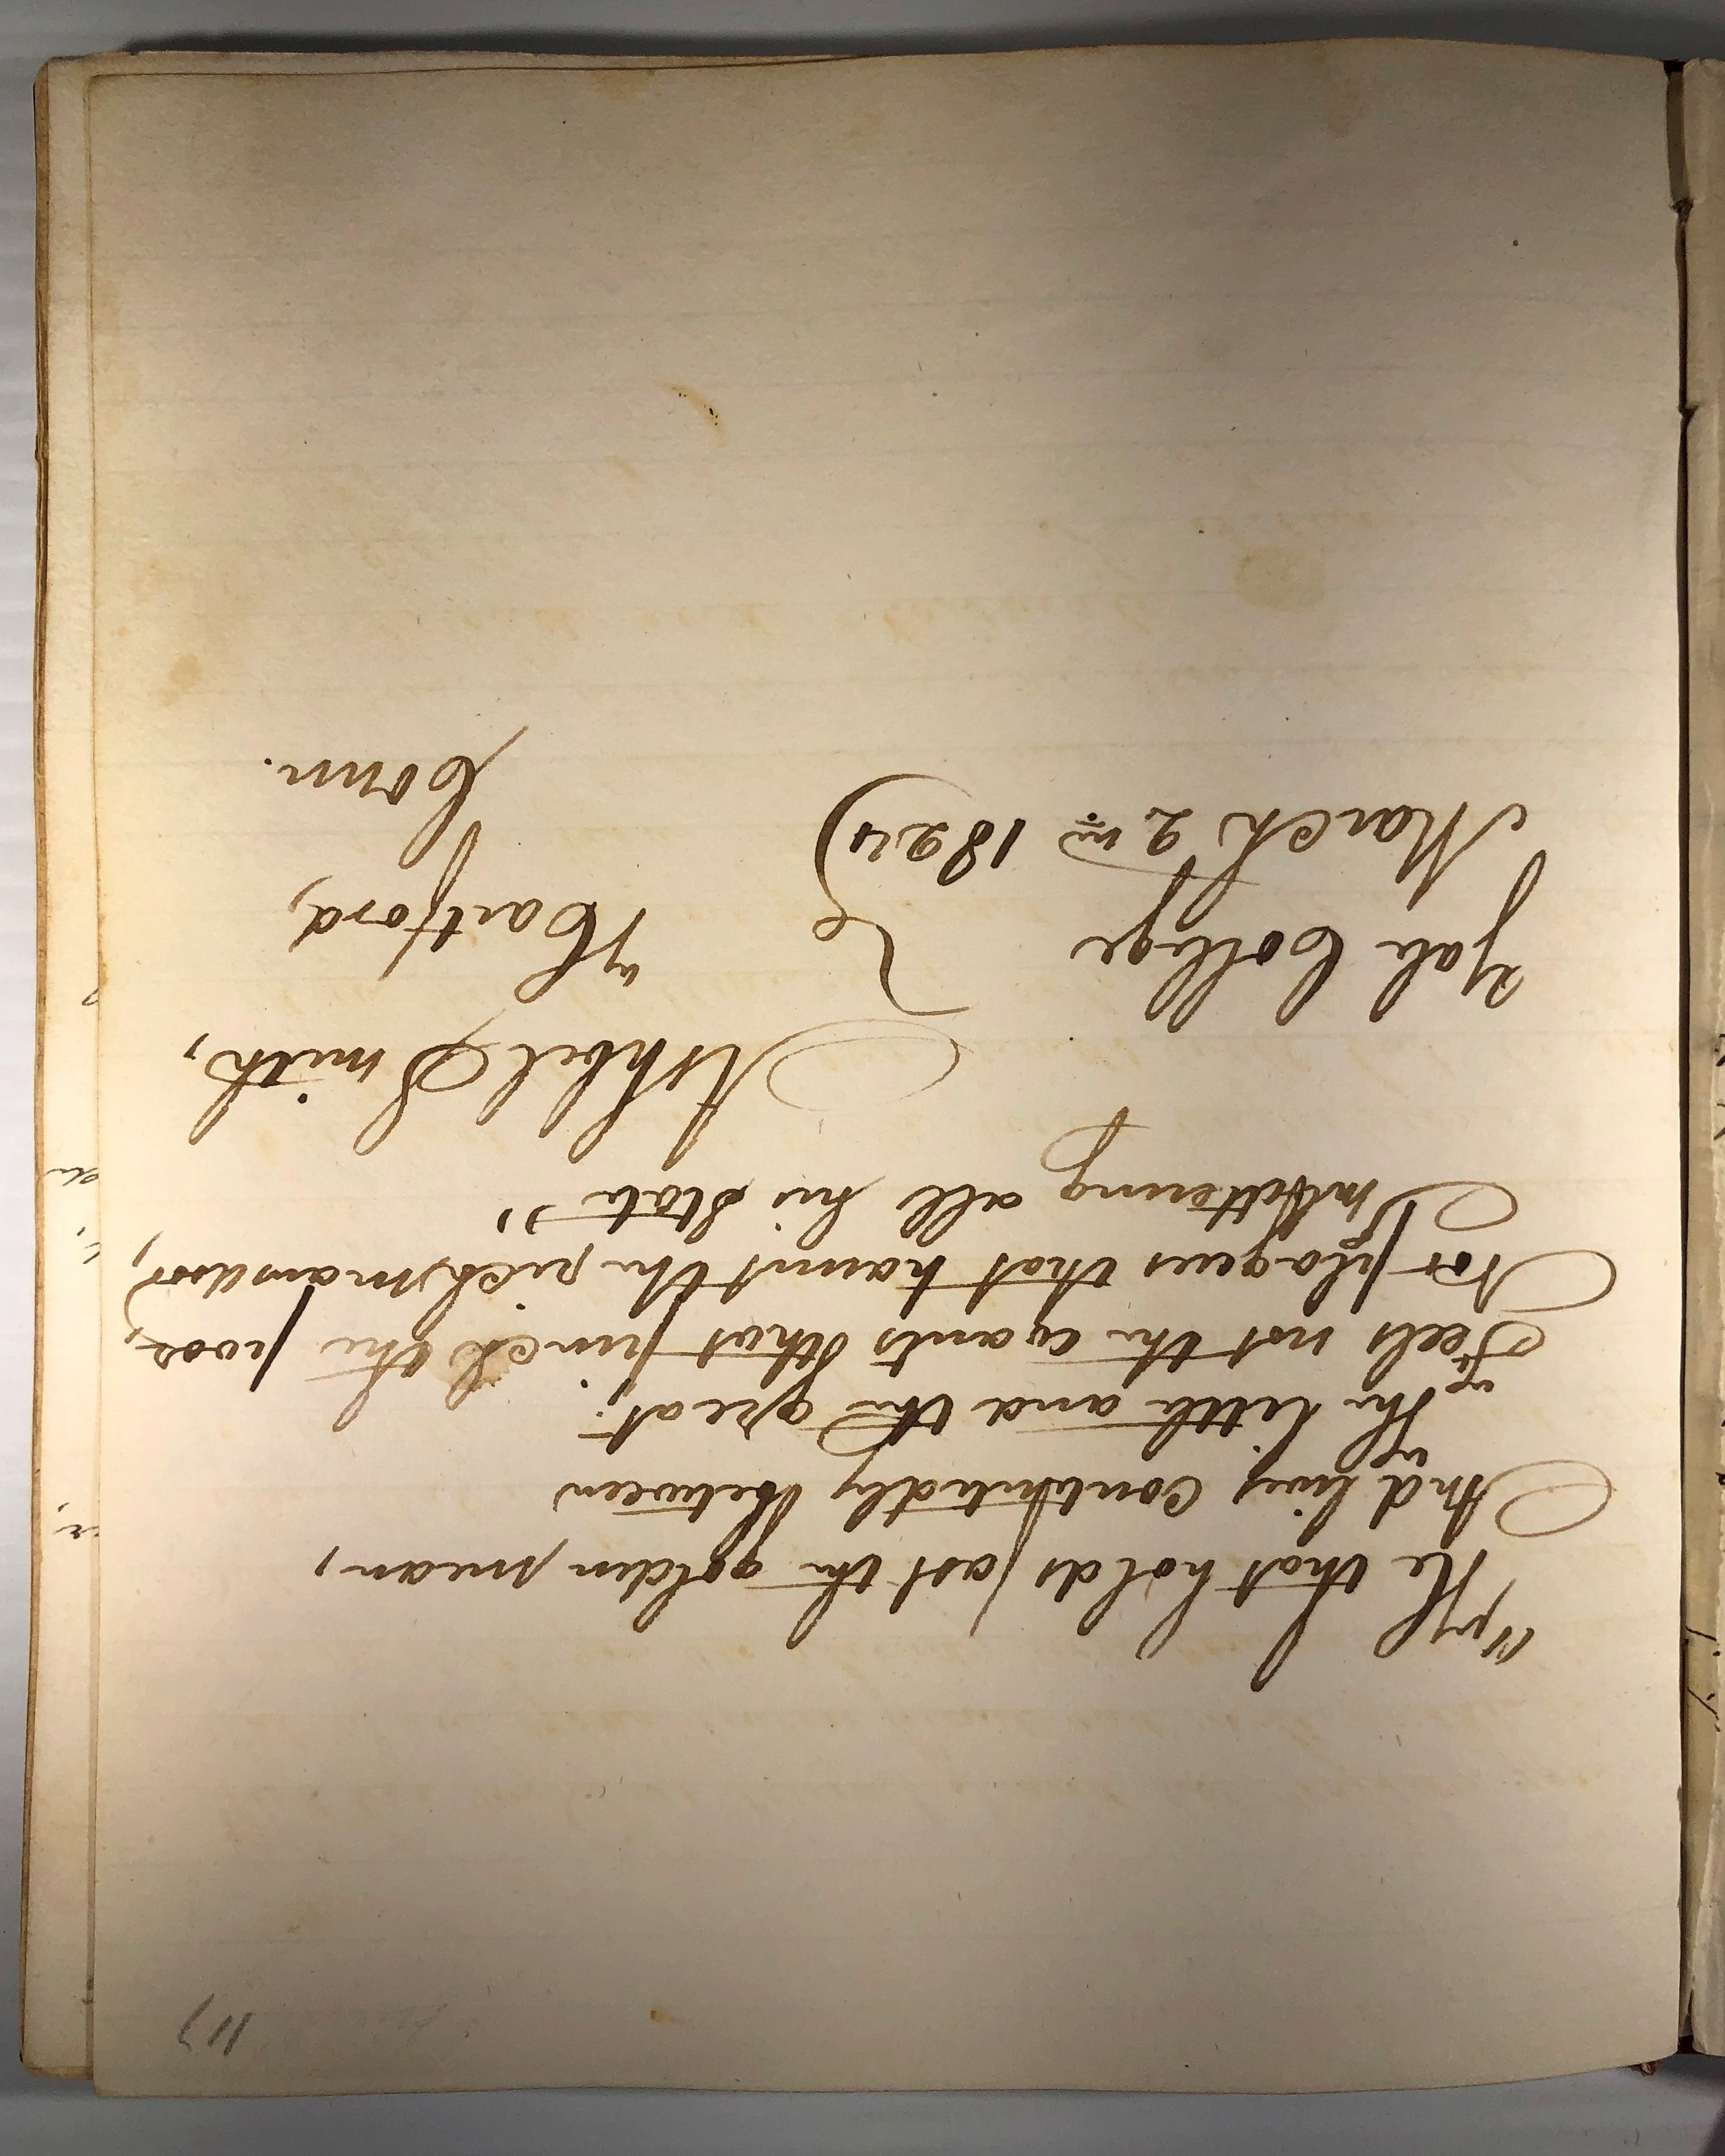 117
"He that holds fast the golden mean,
And lives contentedly between
The little and the great,
Feels not the wants that pinch the poor,
Nor plagues that haunt the rich man's door,
Imbittering all his state"
Ashbel Smith,
Yale College
Hartford,
March 2nd 1824
Conn.